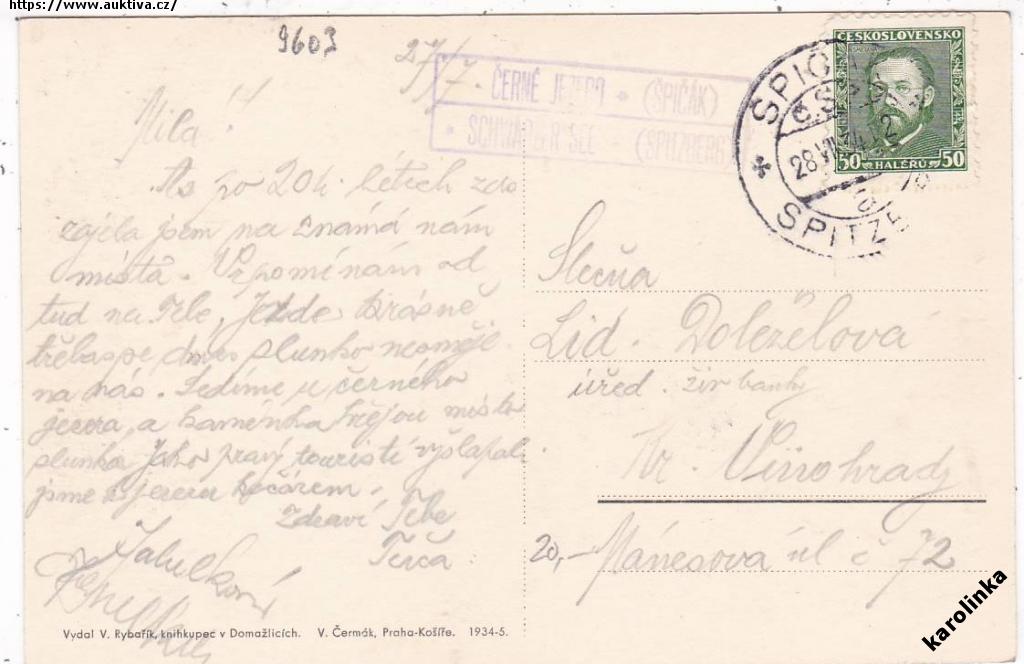 https://www.auktiva.cz/
9603
27/7.
ČERNÉ JEZERO * (ŠPIČÁK)
* SCHWARZER SEE - (SPITZBERG)
ČESKOSLOVENSKO
50 HALÉŘŮ 50
28 VII 34
* SPITZB
Milá!
As po 20ti létech zdo
zajela jsem na známá nám
místa. Vzpomínám od
tud na Tebe, Je zde krásně
třebaspe dnes slunko nesměje
na nás. Sedíme u černého
jezera, a kamínka hřejou místo
slunka, Jako pravý touristi vyšlapali
jsme k jezeru kočárem.
Zdraví Tebe
Terča
Slečna
Lid. Doleželová
úřed. živ banky
Kr. Vinohrady
20,-
Mánesova úl č 72
Vydal V. Rybařík, knihkupec v Domažlicích. V. Čermák, Praha-Košíře. 1934-5.
karolinka